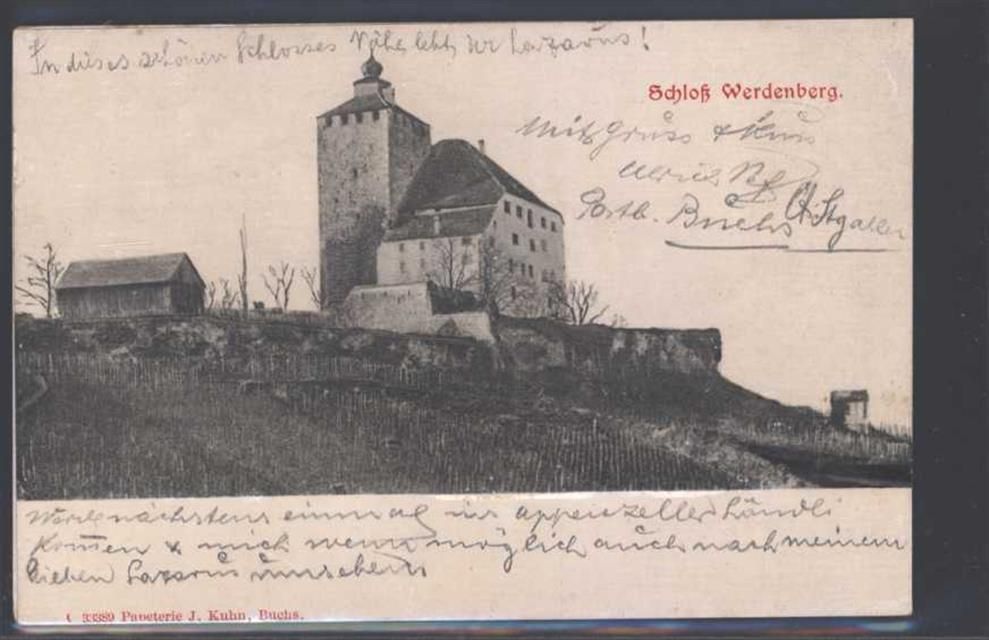 In dieses schönen Schlosses Nähe lebt der Lazarus!
Schloß Werdenberg.
Mit Gruss & Kuss
Ulrich
Postb. Buchs Ct. St gallen
Werde nächstens einmal ins appenzellerländli
Kom̅en & mich wenn möglich auch nach meinem
lieben Lazarus umsehen
33389 Papeterie J. Kuhn, Buchs.